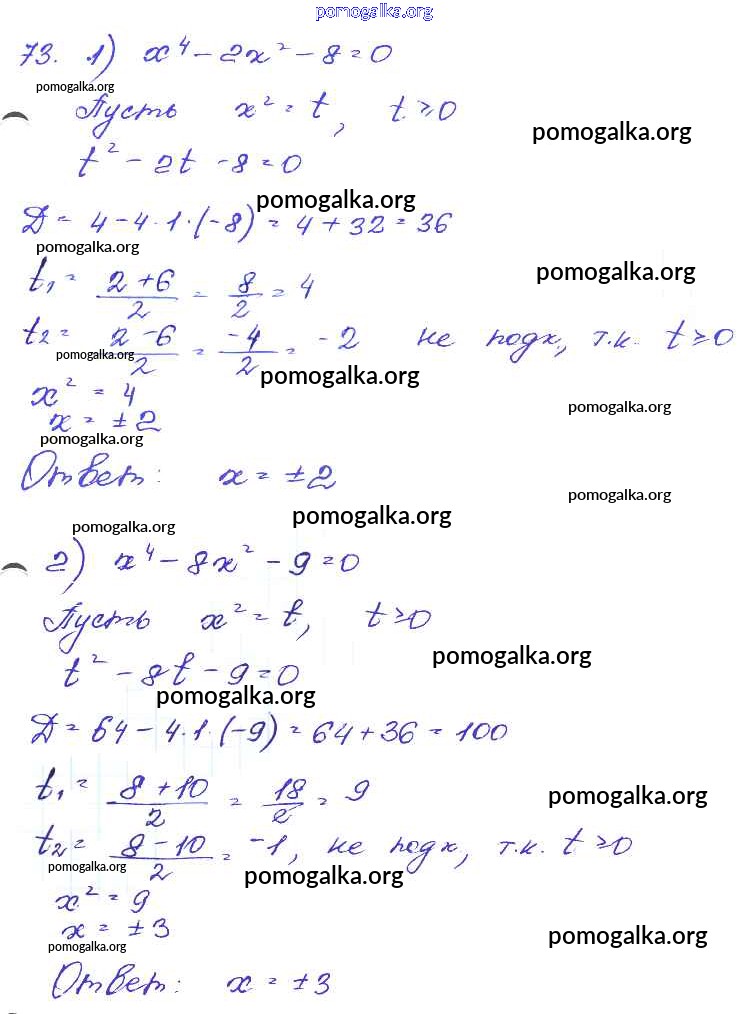 pomogalka.org
73. 1) x⁴ - 2x² - 8 = 0
pomogalka.org
Пусть x² = t, t ≥ 0
pomogalka.org
t² - 2t - 8 = 0
pomogalka.org
Д = 4 - 4·1·(-8) = 4 + 32 = 36
pomogalka.org
pomogalka.org
t₁ = (2+6)/2 = 8/2 = 4
t₂ = (2-6)/2 = -4/2 = -2 не подх, т.к. t ≥ 0
pomogalka.org
pomogalka.org
x² = 4
pomogalka.org
x = ±2
pomogalka.org
Ответ: x = ±2
pomogalka.org
pomogalka.org
pomogalka.org
2) x⁴ - 8x² - 9 = 0
Пусть x² = t, t ≥ 0
pomogalka.org
t² - 8t - 9 = 0
pomogalka.org
Д = 64 - 4·1·(-9) = 64 + 36 = 100
t₁ = (8+10)/2 = 18/2 = 9
pomogalka.org
t₂ = (8-10)/2 = -1, не подх, т.к. t ≥ 0
pomogalka.org
pomogalka.org
x² = 9
x = ±3
pomogalka.org
pomogalka.org
Ответ: x = ±3